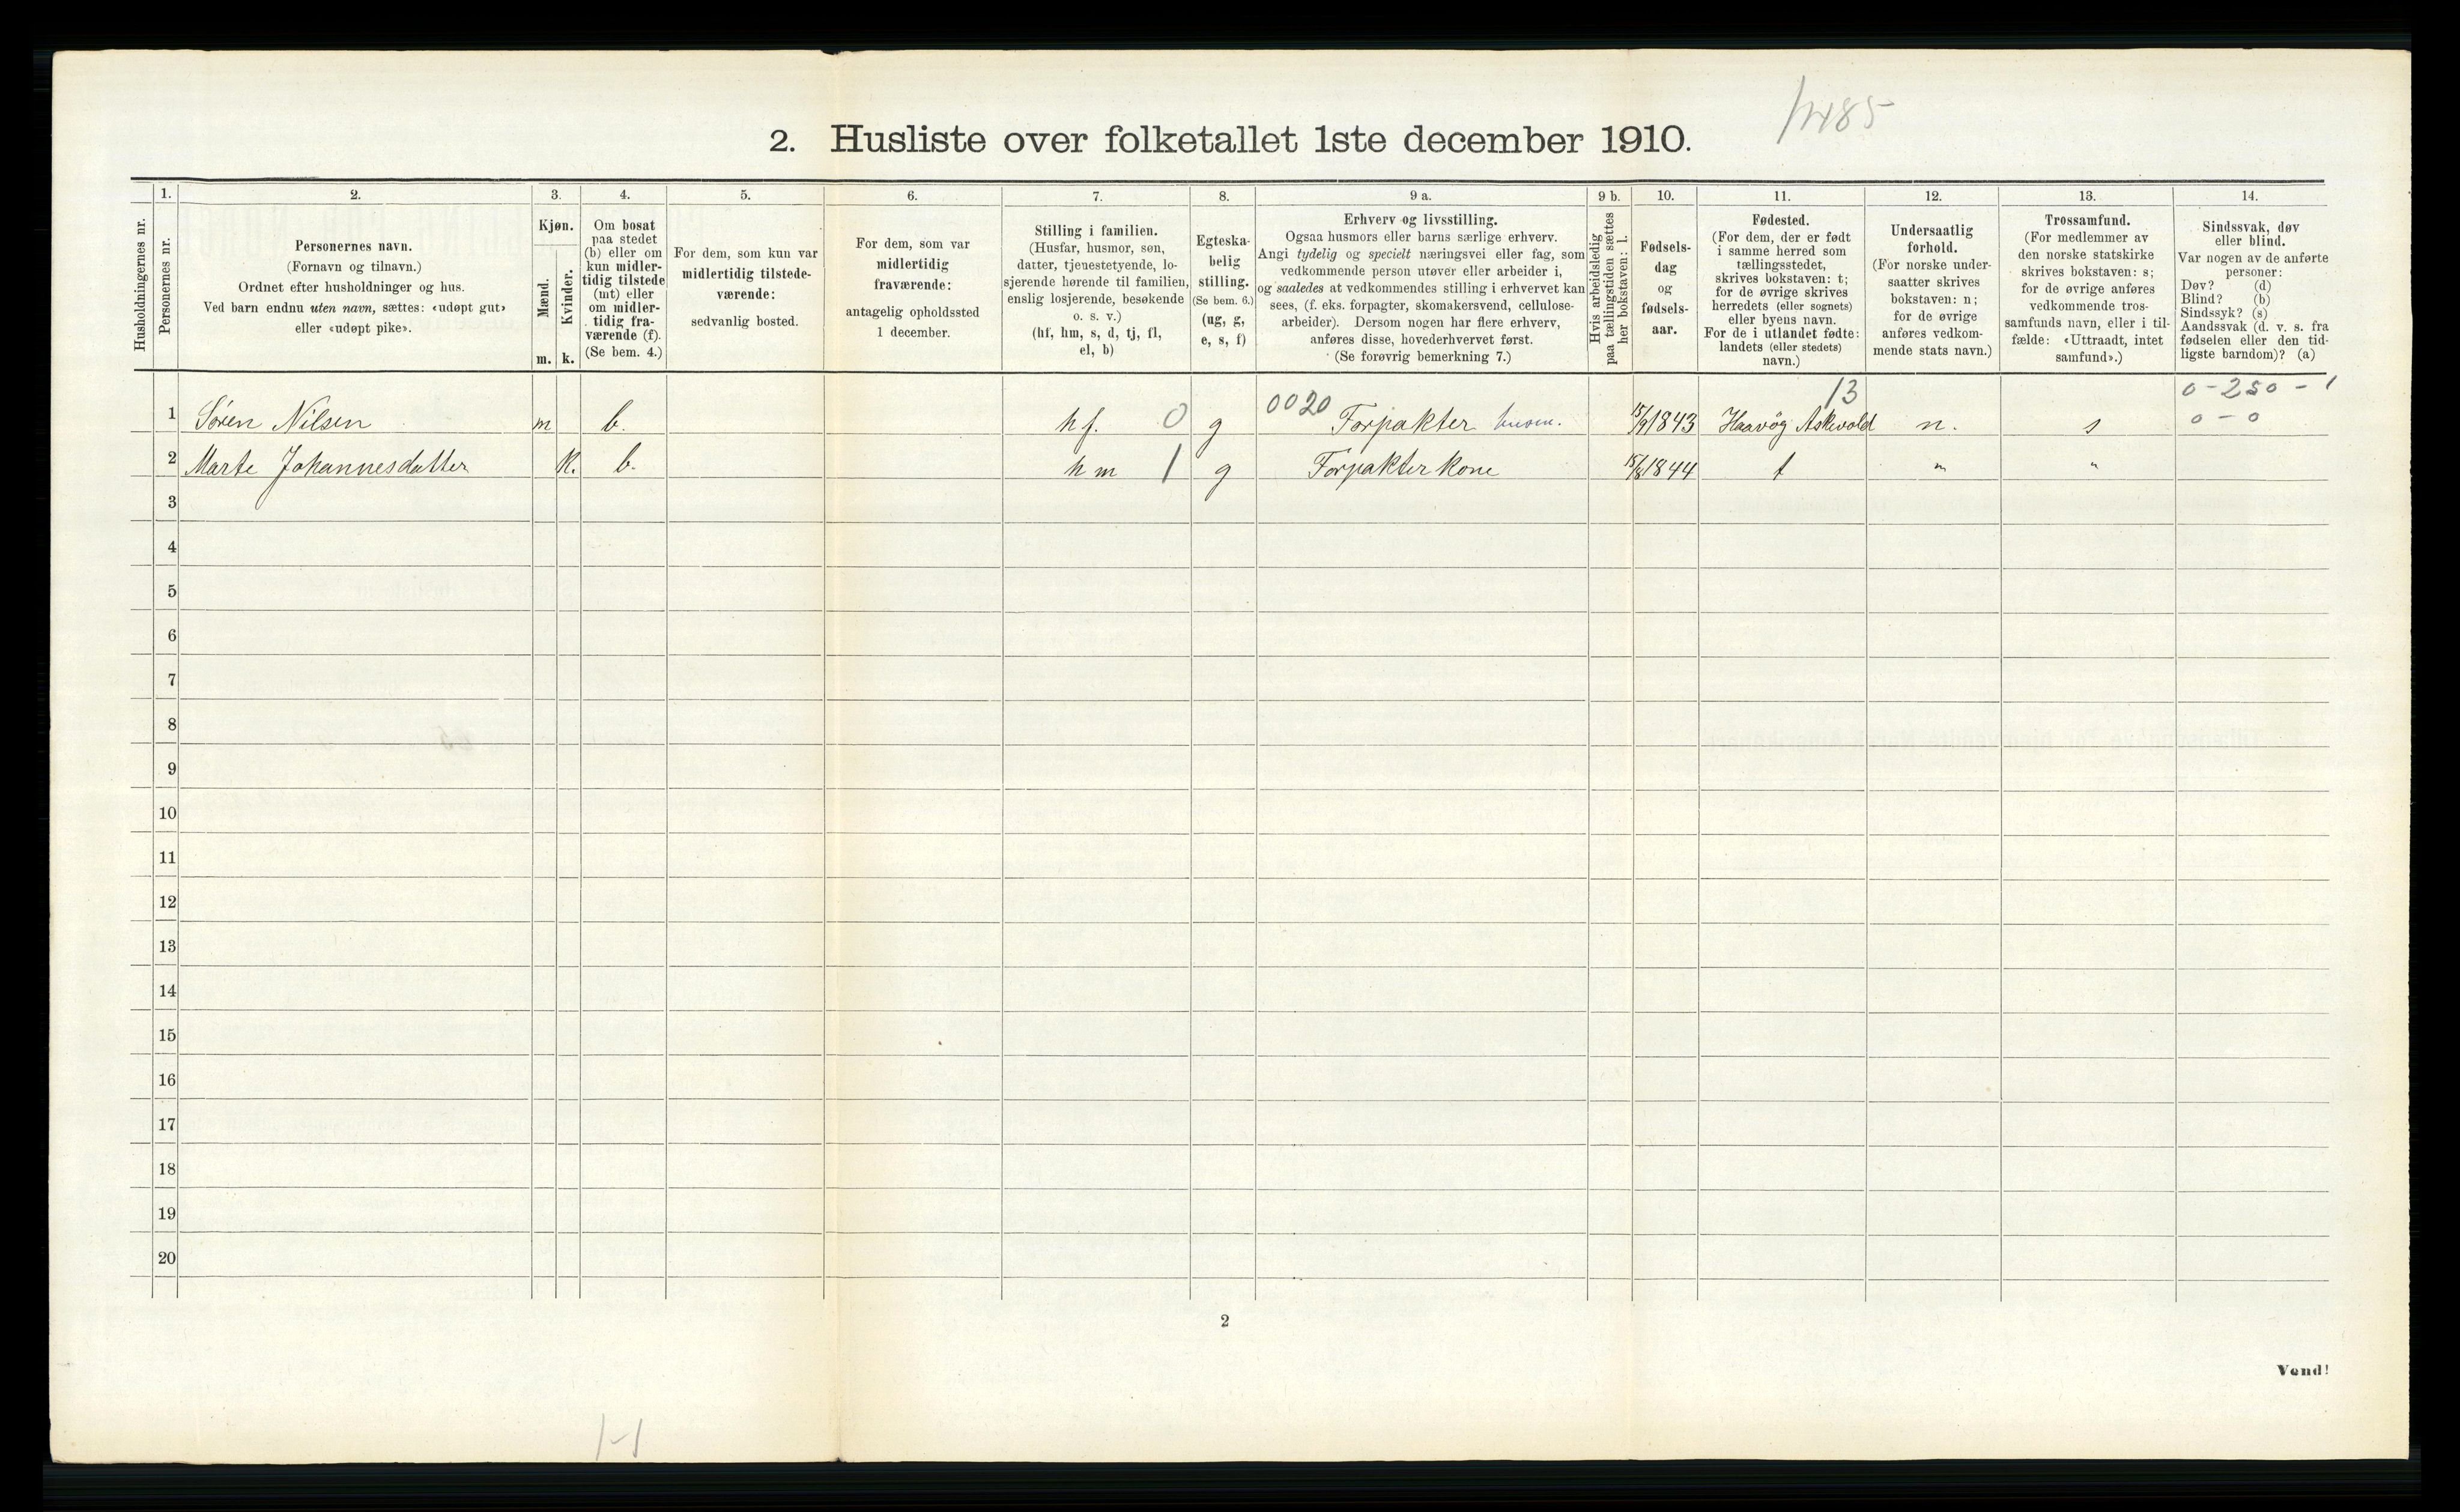 1485
2. Husliste over folketallet 1ste december 1910.
Husholdningernes nr.
1.
Personernes nr.
2.
Personernes navn.
(Fornavn og tilnavn.)
Ordnet efter husholdninger og hus.
Ved barn endnu uten navn, sættes: «udøpt gut»
eller «udøpt pike».
3.
Kjøn.
Mænd.
Kvinder.
m. k.
4.
Om bosat
paa stedet
(b) eller om
kun midler-
tidig tilstede
(mt) eller
om midler-
tidig fra-
værende (f).
(Se bem. 4.)
5.
For dem, som kun var
midlertidig tilstede-
værende:
sedvanlig bosted.
6.
For dem, som var
midlertidig
fraværende:
antagelig opholdssted
1 december.
7.
Stilling i familien.
(Husfar, husmor, søn,
datter, tjenestetyende, lo-
sjerende hørende til familien,
enslig losjerende, besøkende
o. s. v.)
(hf, hm, s, d, tj, fl,
el, b)
8.
Egteska-
belig
stilling.
(Se bem. 6.)
(ug, g,
e, s, f)
9 a.
Erhverv og livsstilling.
Ogsaa husmors eller barns særlige erhverv.
Angi tydelig og specielt næringsvei eller fag, som
vedkommende person utøver eller arbeider i,
og saaledes at vedkommendes stilling i erhvervet kan
sees, (f. eks. forpagter, skomakersvend, cellulose-
arbeider). Dersom nogen har flere erhverv,
anføres disse, hovederhvervet først.
(Se forøvrig bemerkning 7.)
9 b.
Hvis arbeidsledig
paa tællingstiden sættes
her bokstaven: l.
10.
Fødsels-
dag
og
fødsels-
aar.
11.
Fødested.
(For dem, der er født
i samme herred som
tællingsstedet,
skrives bokstaven: t;
for de øvrige skrives
herredets (eller sognets)
eller byens navn.
For de i utlandet fødte:
landets (eller stedets)
navn.)
12.
Undersaatlig
forhold.
(For norske under-
saatter skrives
bokstaven: n;
for de øvrige
anføres vedkom-
mende stats navn.)
13.
Trossamfund.
(For medlemmer av
den norske statskirke
skrives bokstaven: s;
for de øvrige anføres
vedkommende tros-
samfunds navn, eller i til-
fælde: «Uttraadt, intet
samfund».)
14.
Sindssvak, døv
eller blind.
Var nogen av de anførte
personer:
Døv? (d)
Blind? (b)
Sindssyk? (s)
Aandssvak (d. v. s. fra
fødselen eller den tid-
ligste barndom)? (a)
0020 13 0-250-1
1 Søren Nilsen m b. hf. 0 g Forpakter 15/9 1843 Haavög Askvold n. s 0-0
2 Marte Johannesdatter k. b. hm 1 g Forpakterkone 15/8 1844 t " "
3
4
5
6
7
8
9
10
11
12
13
14
15
16
17
18
19
20
2
Vend!
1-1